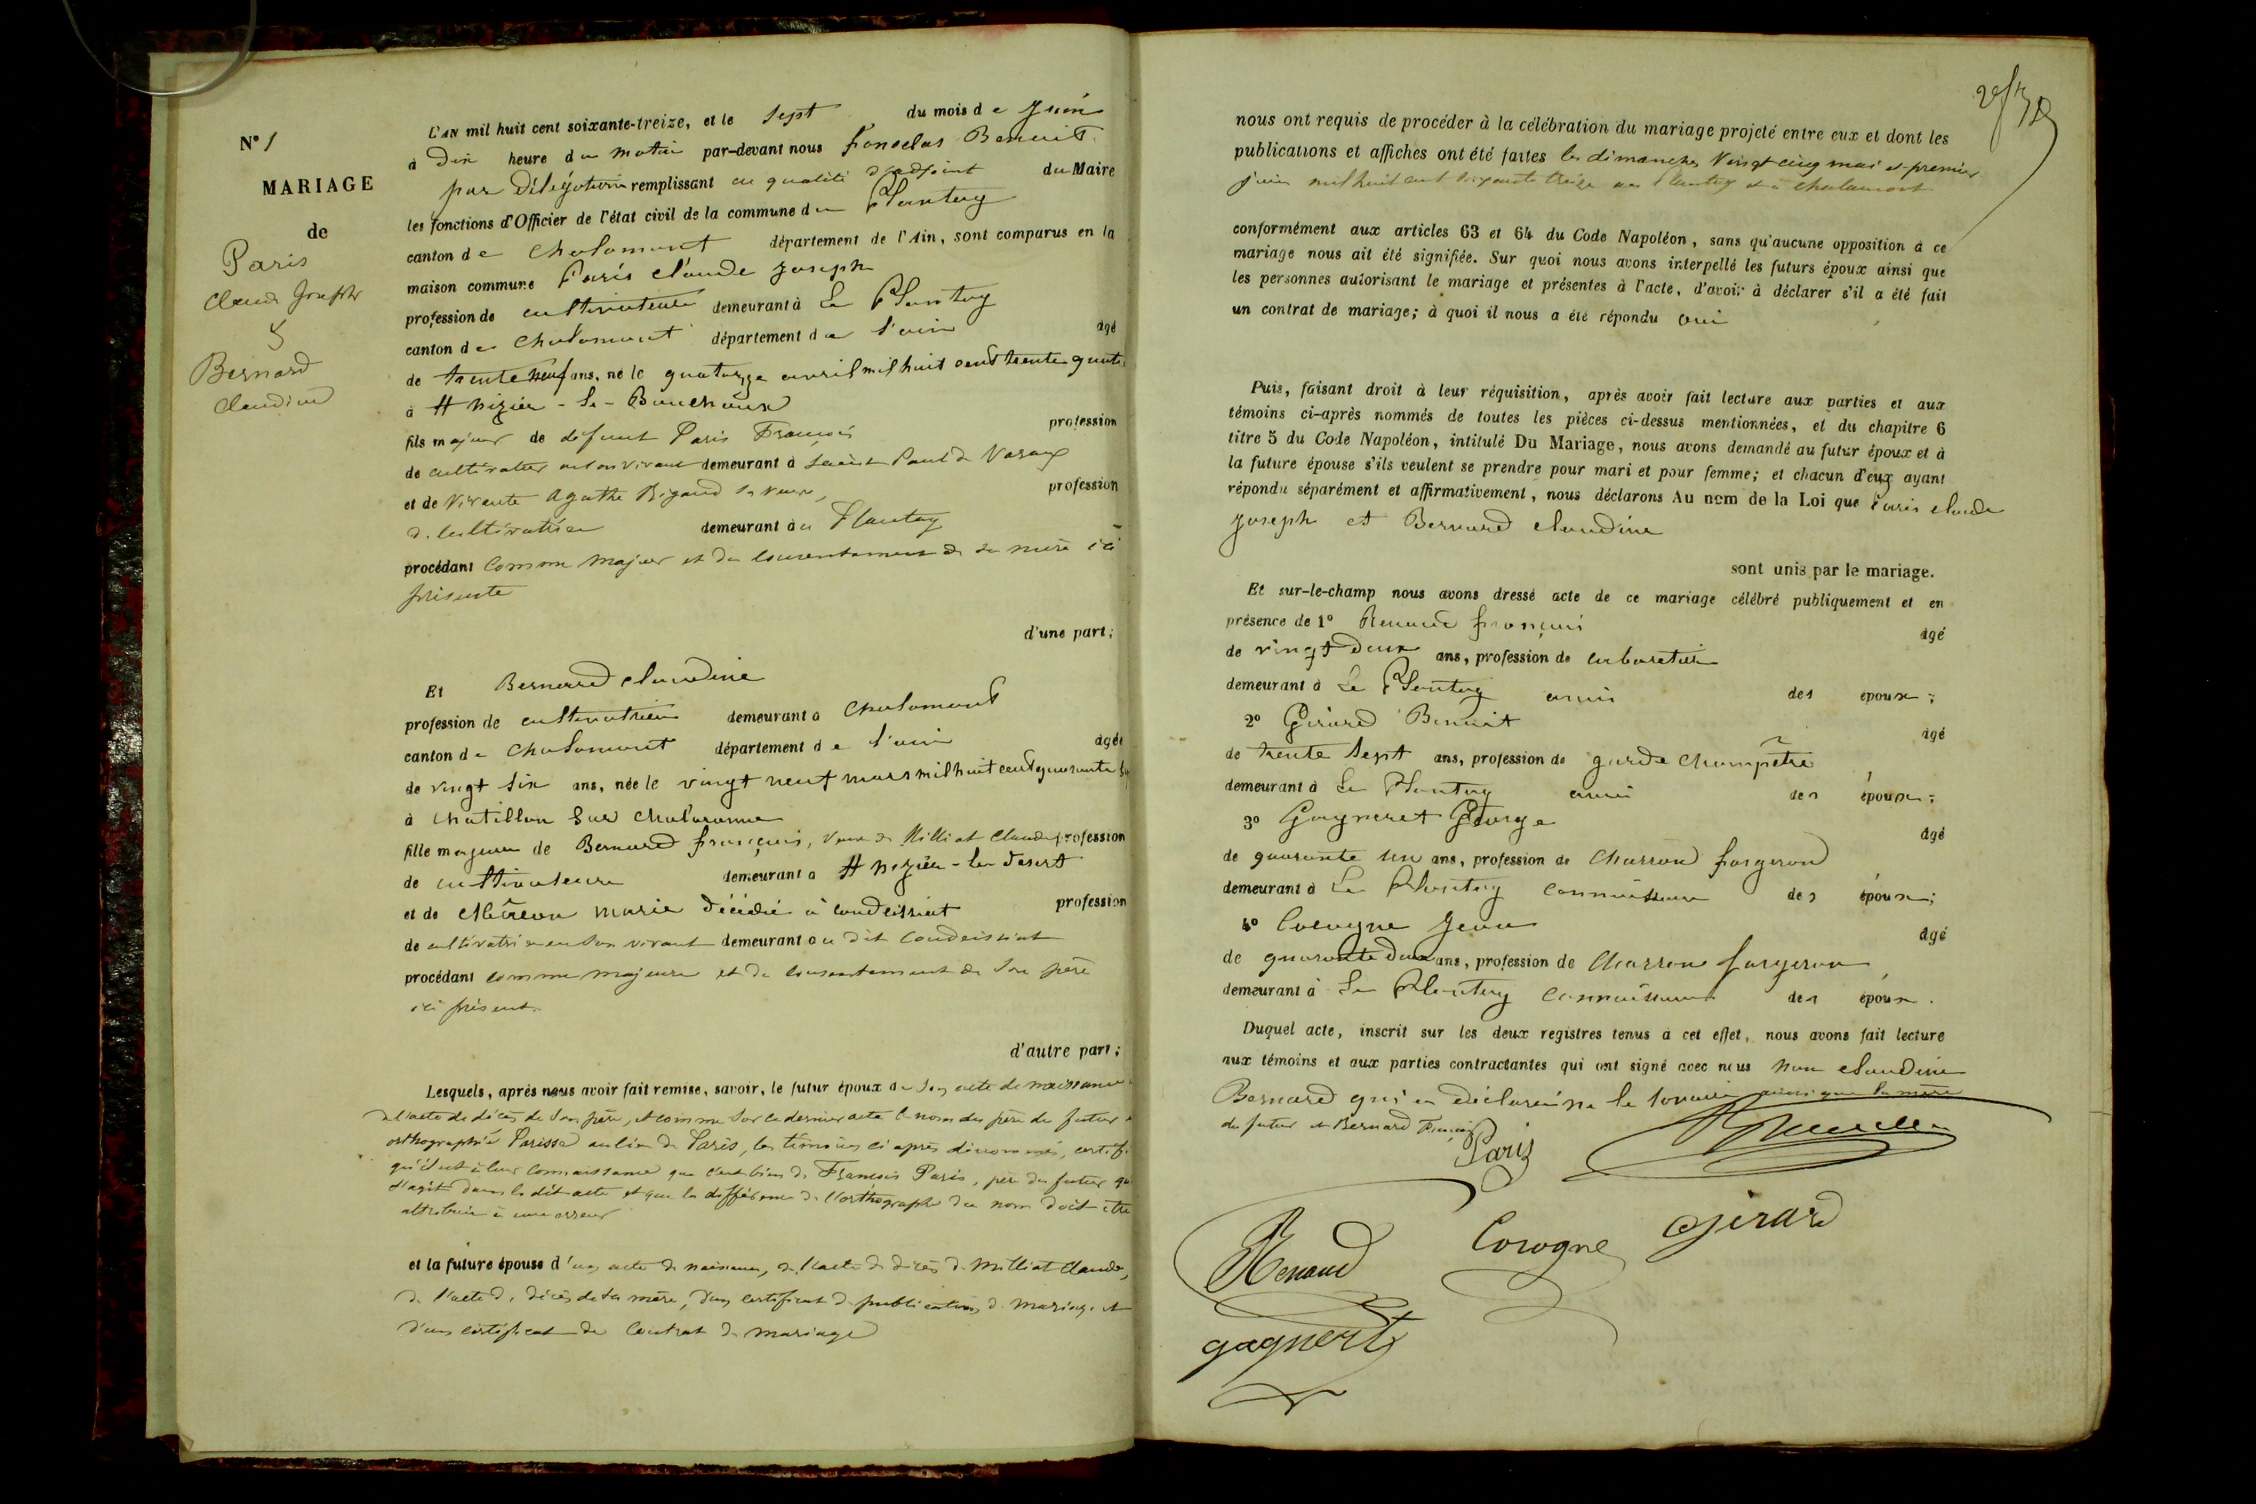 N° 1
MARIAGE
de
Paris
Claude Joseph
&
Bernard
Claudine
L'AN mil huit cent soixante-treize, et le sept du mois de Juin
à Dix heure du matin par-devant nous Benoit
par Délégation remplissant en qualité d'adjoint du Maire
les fonctions d'Officier de l'état civil de la commune du Plantay
canton de Chalamont département de l'Ain, sont comparus en la
maison commune Paris Claude Joseph
profession de cultivateur demeurant à Le Plantay
canton de Chalamont département de l'ain âgé
de trente neuf ans, né le quatorze avril mil huit cent trente quatre
à St Nizier-le-Bouchoux
fils majeur de défunt Paris François profession
de cultivateur en son vivant demeurant à Saint Paul de Varax
et de Vivante Agathe Rigaud sa veuve, profession
de cultivatrice demeurant au Plantay
procédant comme majeur et du consentement de sa mère ici
présente
d'une part;
Et Bernard Claudine
profession de cultivatrice demeurant à Chalamont
canton de Chalamont département de l'ain âgée
de vingt six ans, née le vingt neuf mars mil huit cent quarante
à Chatillon sur Chalaronne
fille majeure de Bernard François, veuve de Milliat Claude profession
de cultivateur demeurant à St Nizier-le-Désert
et de marie décédée à Condeissiat profession
de cultivatrice en son vivant demeurant au dit Condeissiat
procédant comme majeure et du consentement de son père
ici présent.
d'autre part;
Lesquels, après nous avoir fait remise, savoir, le futur époux de son acte de naissance
de l'acte de décès de son père, et comme sur ce dernier acte le nom du père du futur
orthographié Parissed au lieu de Paris, les témoins ci après dénommés, certif
qu'il est à leur connaissance que c'est bien de François Paris, père du futur qu
s'agit dans le dit acte et que la différence de l'orthographe du nom doit être
attribuée à une erreur
et la future épouse d'un acte de naissance, de l'acte de décès de Milliat Claude,
de l'acte de décès de sa mère, d'un certificat de publication de mariage et
d'un certificat de contrat de mariage
nous ont requis de procéder à la célébration du mariage projeté entre eux et dont les
publications et affiches ont été faites les dimanches Vingt cinq mai et premier
juin mil huit cent soixante treize au Plantay et à Chalamont
conformément aux articles 63 et 64 du Code Napoléon, sans qu'aucune opposition à ce
mariage nous ait été signifiée. Sur quoi nous avons interpellé les futurs époux ainsi que
les personnes autorisant le mariage et présentes à l'acte, d'avoir à déclarer s'il a été fait
un contrat de mariage; à quoi il nous a été répondu oui
Puis, faisant droit à leur réquisition, après avoir fait lecture aux parties et aux
témoins ci-après nommés de toutes les pièces ci-dessus mentionnées, et du chapitre 6
titre 5 du Code Napoléon, intitulé Du Mariage, nous avons demandé au futur époux et à
la future épouse s'ils veulent se prendre pour mari et pour femme; et chacun d'eux ayant
répondu séparément et affirmativement, nous déclarons Au nom de la Loi que Paris Claude
Joseph et Bernard Claudine
sont unis par le mariage.
Et sur-le-champ nous avons dressé acte de ce mariage célébré publiquement et en
présence de 1° Renaud françois âgé
de vingt deux ans, profession de cabaretier
demeurant à Le Plantay amis des époux;
2° Girard Benoit âgé
de trente sept ans, profession de garde champêtre
demeurant à Le Plantay amis des époux;
3° Gagneret George âgé
de quarante un ans, profession de charron forgeron
demeurant à Le Plantay connaissance des époux;
4° Jean âgé
de quarante deux ans, profession de charron forgeron
demeurant à Le Plantay connaissance des époux.
Duquel acte, inscrit sur les deux registres tenus à cet effet, nous avons fait lecture
aux témoins et aux parties contractantes qui ont signé avec nous non Claudine
Bernard qui a déclaré ne le savoir ainsi que la mère
du futur et Bernard François
Paris
Renaud Corogne Girard
gagneret